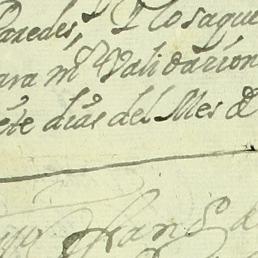 Paredes, Y lo saque
ara mr Validacion
ete dias del Mes de
Franco de